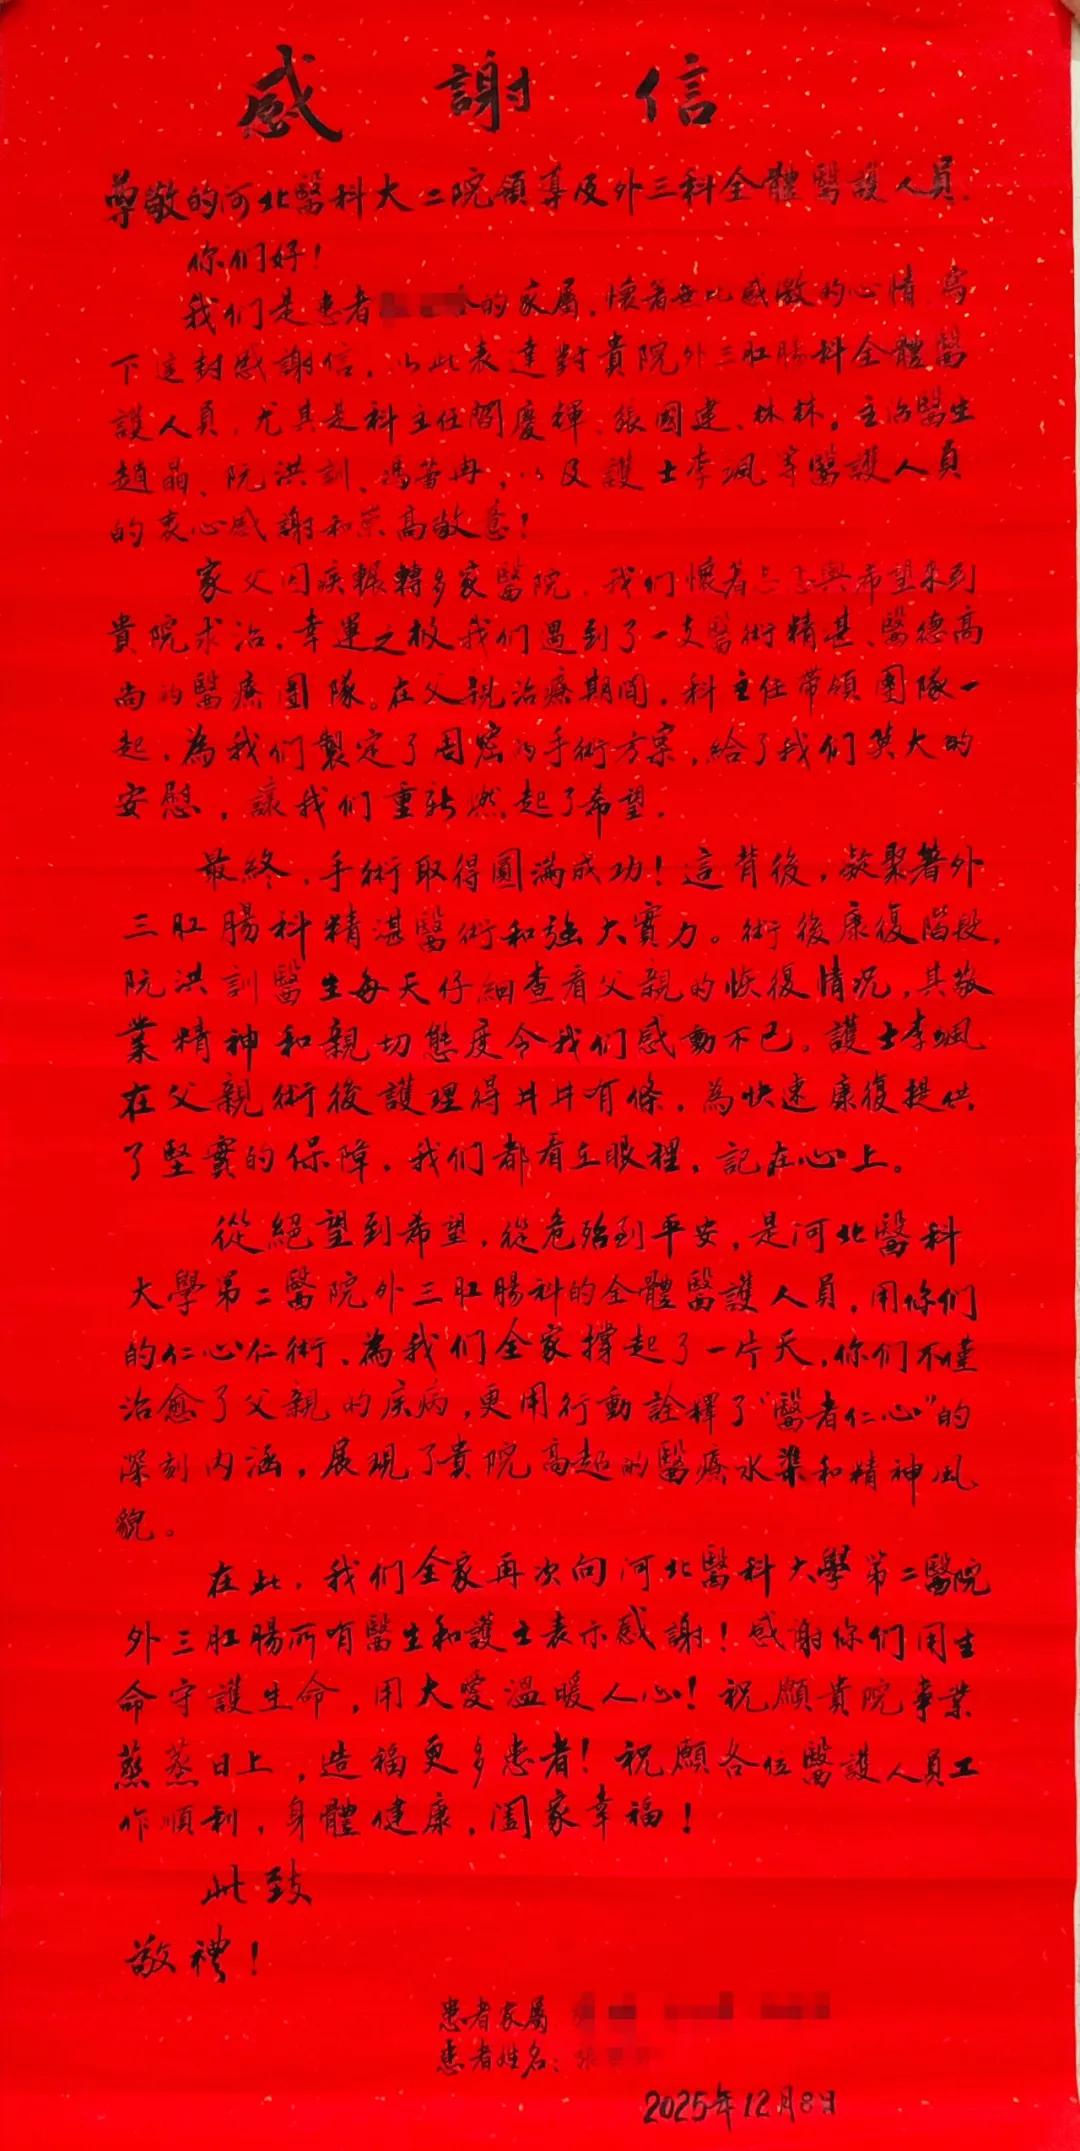 感謝信
尊敬的河北醫科大二院領導及外三科全體醫護人員.
你们好!
我们是患者 的家屬,懷著無比感激的心情,寫
下這封感謝信,以此表達對貴院外三肛腸科全體醫
護人員,尤其是科主任閻慶輝、張國建、林林。主治醫生
趙晶、阮洪訓、馮蕾冉,以及護士李颯等醫護人員
的衷心感謝和崇高敬意!
家父因疾輾轉多家醫院,我们懷著忐忑與希望來到
貴院求治,幸運之极我们遇到了一支醫術精甚、醫德高
尚的醫療團隊。在父親治療期間,科主任带領團隊一
起,為我们製定了周密的手術方案,給了我们莫大的
安慰,讓我们重新燃起了希望.
最終,手術取得圓满成功!這背後,凝聚著外
三肛腸科精湛醫術和強大實力。術後康復階段,
阮洪訓醫生每天仔細查看父親的恢復情况,其敬
業精神和親切態度令我们感動不已。護士李颯
在父親術後護理得井井有條,為快速康復提供
了堅實的保障,我们都看在眼裡,記在心上。
從絕望到希望,從危殆到平安,是河北醫科
大學第二醫院外三肛腸科的全體醫護人員,用你们
的仁心仁術,為我们全家撐起了一片天,你们不僅
治愈了父親的疾病,更用行動詮釋了“醫者仁心”的
深刻内涵,展現了貴院高超的醫療水準和精神風
貌。
在此,我们全家再次向河北醫科大學第二醫院
外三肛腸所有醫生和護士表示感謝!感謝你们用生
命守護生命,用大愛溫暖人心!祝願貴院事業
蒸蒸日上,造福更多患者!祝願各位醫護人員工
作順利,身體健康,闔家幸福!
此致
敬禮!
患者家屬
患者姓名:張
2025年12月8日